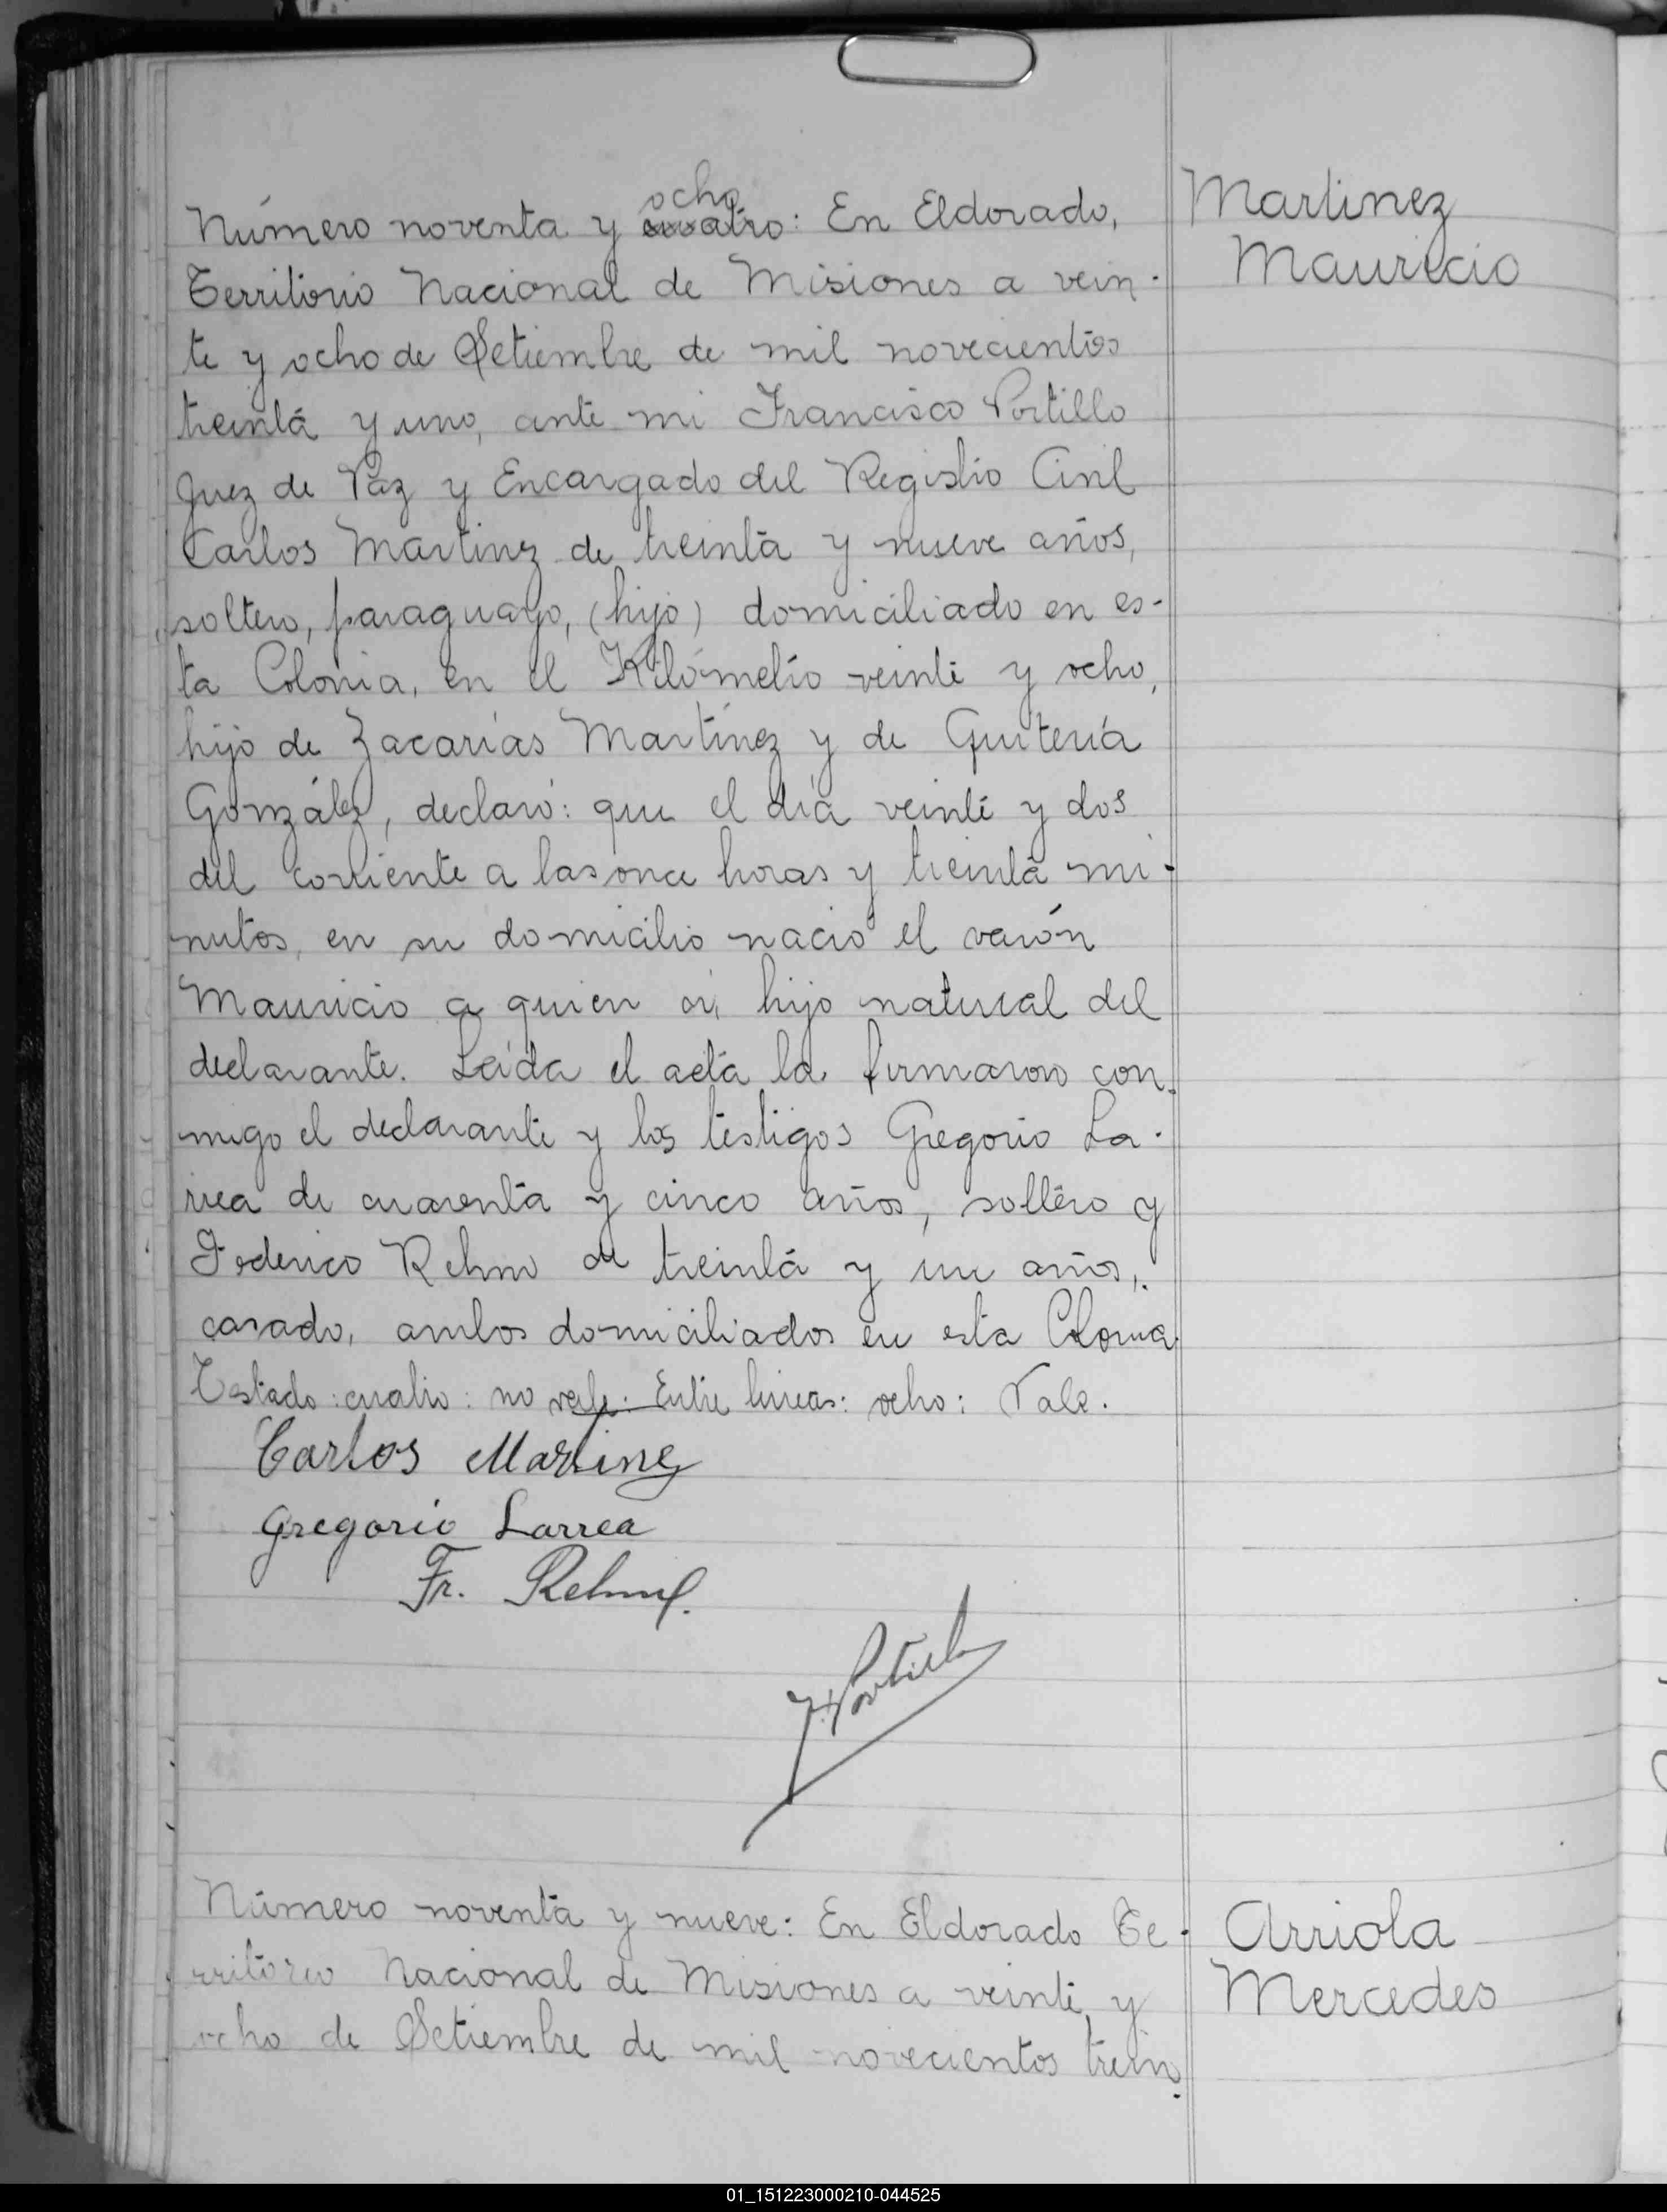 ocho
Número noventa y cuatro: En Eldorado,
Territorio Nacional de Misiones a vein-
te y ocho de Setiembre de mil novecientos
treinta y uno, ante mi Francisco Portillo
Juez de Paz y Encargado del Registro Civil
Carlos Martinz de treinta y nueve años,
soltero, paraguayo, (hijo) domiciliado en es-
ta Colonia, en el Kilómetro veinte y ocho,
hijo de Zacarías Martínez y de Quiteria
González, declaró: que el día veinte y dos
del corriente a las once horas y treinta mi-
nutos, en su domicilio nació el varón
Mauricio a quien oí, hijo natural del
declarante. Leída el acta la firmaron con-
migo el declarante y los testigos Gregorio La-
rrea de cuarenta y cinco años, soltero y
Federico Rehm de treinta y un años,
casado, ambos domiciliados en esta Colonia
Testado: cuatro: no vale: Entre líneas: ocho: Vale.
Carlos Martinez
Gregorio Larrea
Fr. Rehm
F. Portillo
Martinez
Mauricio
Número noventa y nueve: En Eldorado Te-
rritorio Nacional de Misiones a veinte y
ocho de Setiembre de mil novecientos trein-
Arriola
Mercedes
01_151223000210-044525